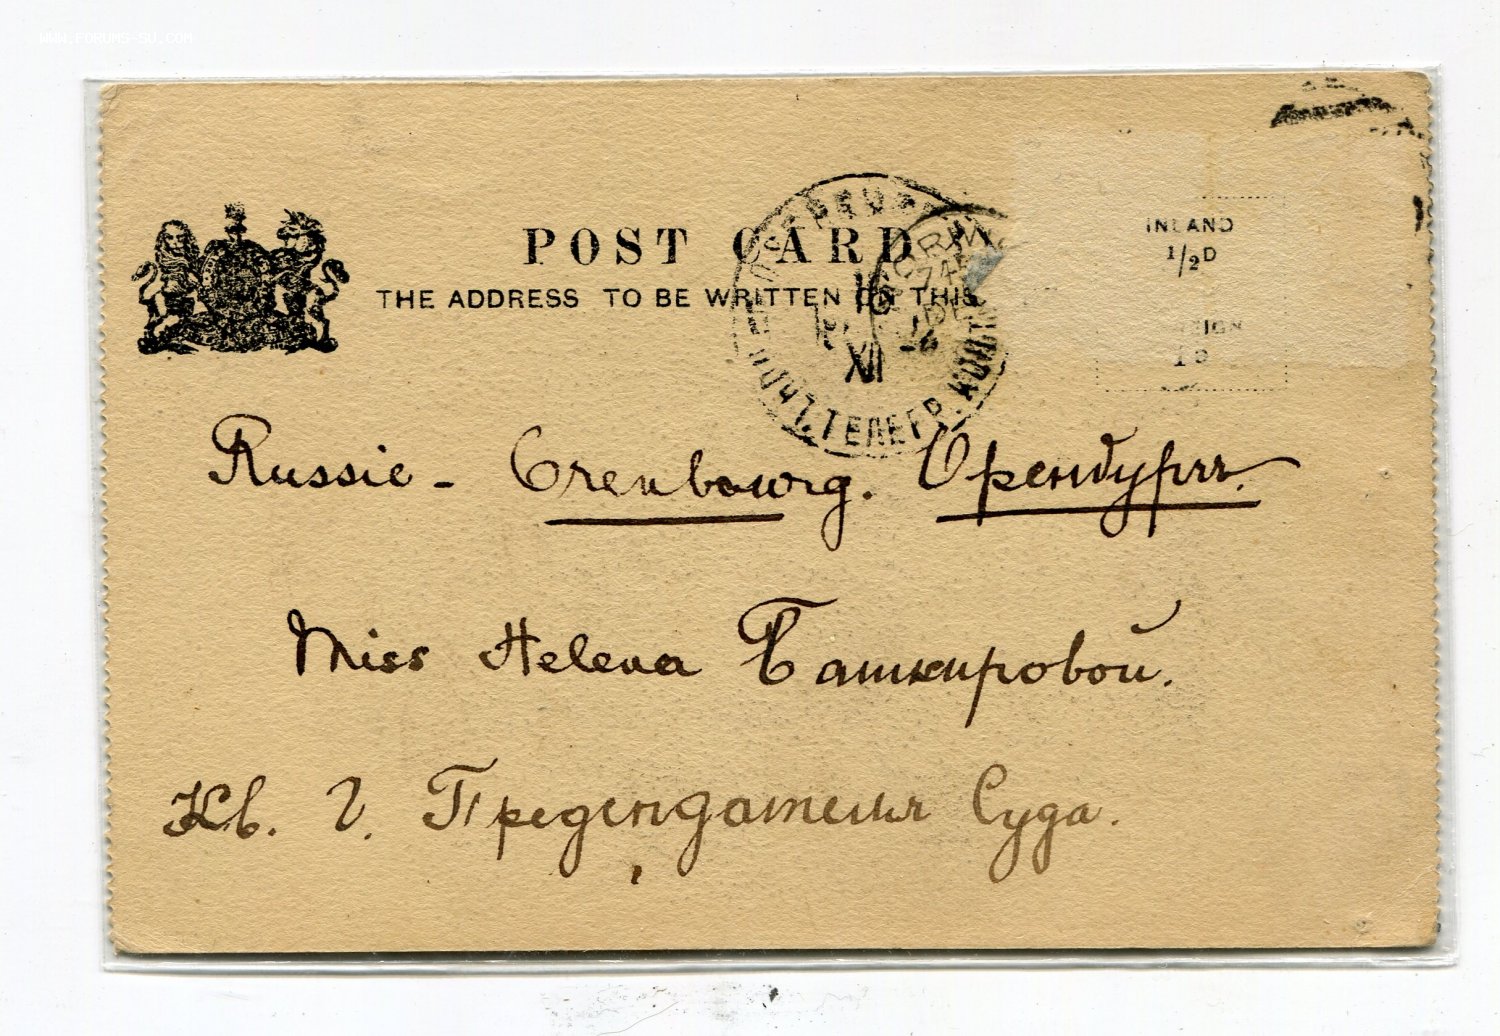 WWW.FORUMS-SU.COM
POST CARD
THE ADDRESS TO BE WRITTEN ON THIS
INLAND
1/2D
XII
ТЕЛЕГР.
Russie - Orenbourg. Оренбургъ.
Miss Helena Башкировой.
Кв. Г. Председателя Суда.